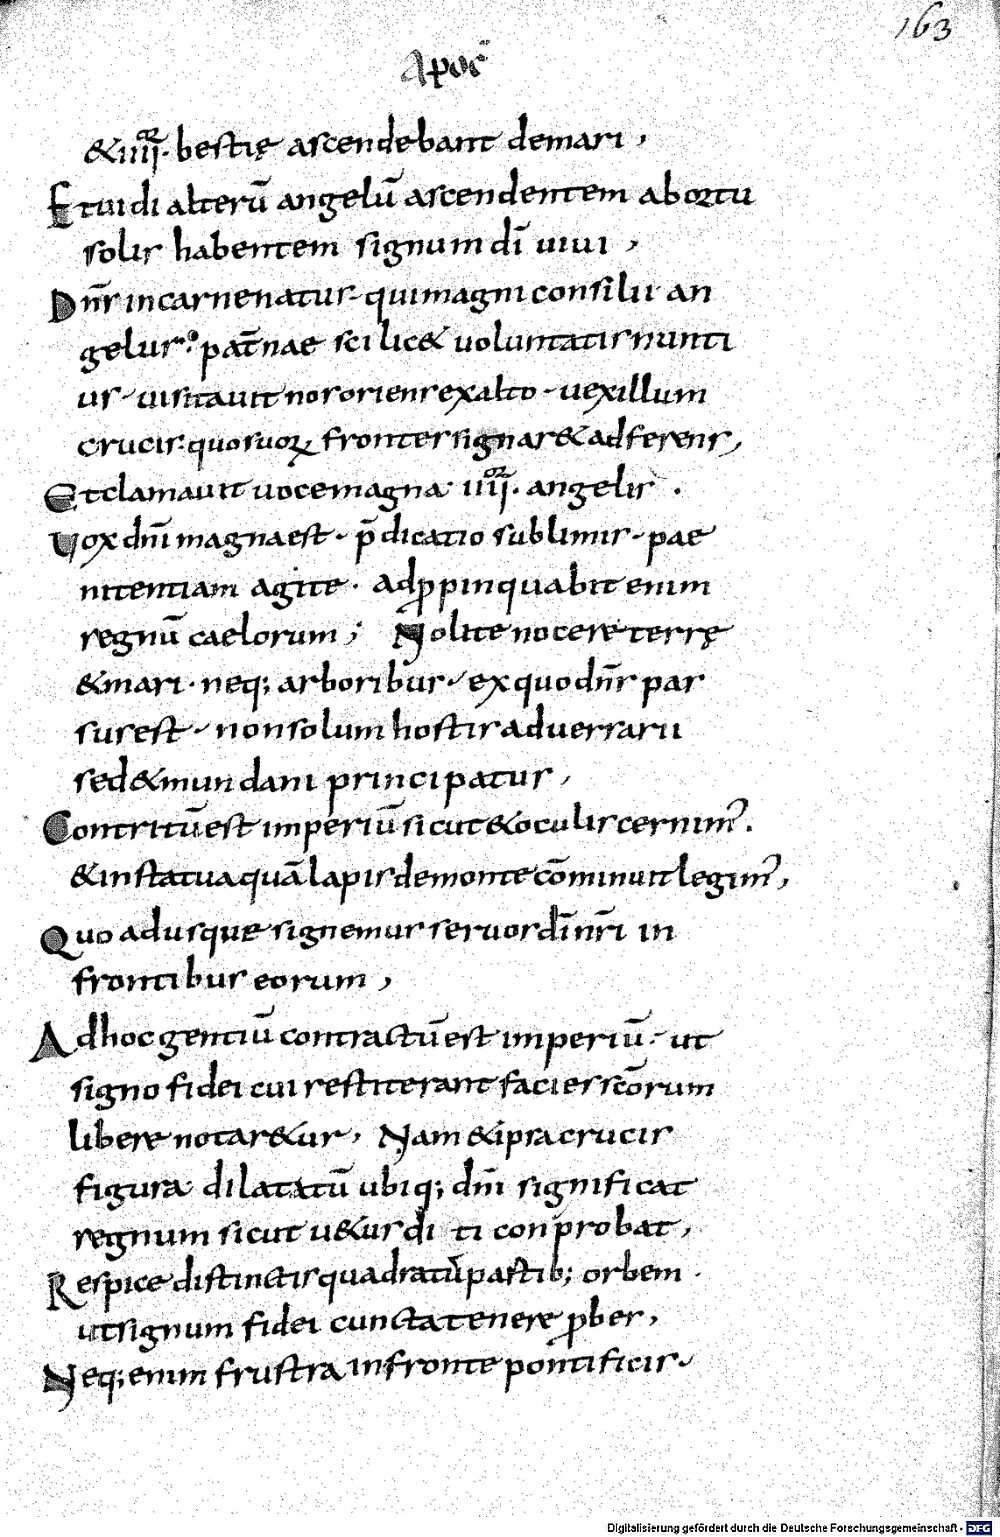 163
Apoc̄
& iiii^or · bestię ascendebant demari ,
Et uidi alterū angelū ascendentem abortu
solis habentem signum dī uiui ,
Dn̄s incarnenatus · quimagni consilii an
gelus : pat̄nae scilic& uoluntatis nunti
us · uisitauit nos oriens exalto · uexillum
crucis · quo suoꝝ frontes signar& adferens ,
Et clamauit uoce magna iiii^or · angelis .
Uox dn̄i magna est · p̄dicatio sublimis · pae
nitentiam agite · adp̱pinquabit enim
regnū caelorum ; Nolite nocere terrę
& mari · neq; arboribus · ex quo dn̄s pas
sus est · non solum hostis aduersarii
sed & mundani principatus ,
Contritū est imperiū sicut & oculis cernim᾽ .
& in statua quā lapis demonte cōminuit legim᾽ ,
Quo adusque signemus seruos dī nr̄i in
frontibus eorum ,
Ad hoc gentiū contractū est imperiū · ut
signo fidei cui restiterant facies scōrum
libere notar&ur , Nam & ipsa crucis
figura dilatatū ubiq; dn̄i significat
regnum sicut u&us di ti con probat ,
Respice distinctis quadratū partib; orbem ·
ut signum fidei cuncta tenere ꝓbes ,
Neq; enim frustra infronte pontificis ·
Digitalisierung gefördert durch die Deutsche Forschungsgemeinschaft - DFG